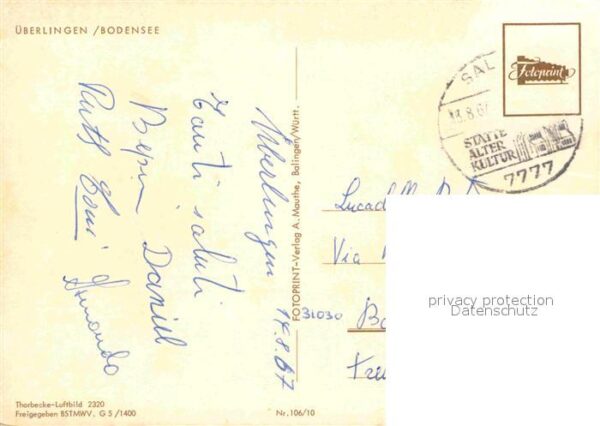 ÜBERLINGEN / BODENSEE
Überlingen 14.8.67
Tanti saluti
Daniel
Ruth
Armando
FOTOPRINT-Verlag A. Mauthe, Balingen/Württ.
Fotoprint
SAL
8.67
STÄTTE
ALTER
KULTUR
7777
Via
31030
privacy protection
Datenschutz
Thorbecke-Luftbild 2320
Freigegeben BSTMWV. G 5 /1400
Nr. 106/10